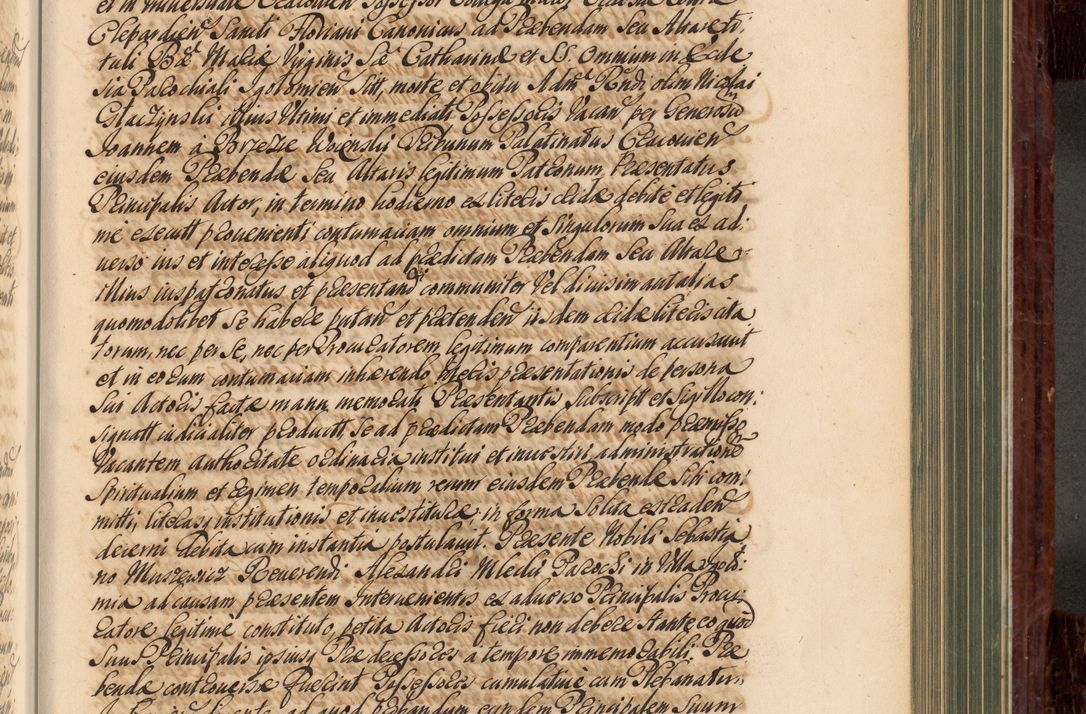 Clepardien Sancti Floriani Canonicus ad Præbendam Seu Altare ti:
tuli Bæ Mariæ Virginis Sæ Catharinæ et SS. Omnium in Eccle
sia Parochiali Igołomien Sitt, morte et obitu Adm Rndi olim Nicolai
illius Ultimi et immediati Possessoris Vacan per Generosū
Joannem à Brzezie Tribunum Palatinatus Cracovien
eiusdem Præbendæ Seu Altaris legitimum Patronum, Præsentatus
Principalis Actor, in termino hodierno ex literis cridæ debite et legiti
me execut provenienti contumaciam omnium et Singulorum Sua ex ad:
verso ius et interesse aliquod ad prædictam Præbendam Seu Altare
illius iuspatronatus et præsentand communiter Vel divisim aut alias
quomodolibet Se habere putan et prætenden iisdem cridæ literis cita
torum, nec per Se, nec per Procuratorem legitimum comparentium accusavit
et in eorum contumaciam inhærendo literis præsentationis de persona
Sui Actoris factæ manu memorati Præsentantis Subscript et Sigillo con:
signatt iudicialiter productt, Se ad prædictam Præbendam modo præmisso
Vacantem authoritate ordinaria institui et investiri, administrationē
Spiritualium et regimen temporalium rerum eiusdem Præbendæ Sibi com:
mitti, literasq institutionis et investituræ in forma Solita extraden
decerni debita cum instantia postulavit. Præsente Nobili Sebastia
no Muszewicz Reverendi Alexandri Parochi in
mia ad causam præsentem Intervenientis ex adverso Principalis Procu:
ratore legitime constituto, petita Actoris fieri non debere stante eo quod
Suus Principalis ipsiusq Præ decessores a tempore immemorabili Præ
bendæ controversæ fuerint Possessores cumulative cum Plebanatu